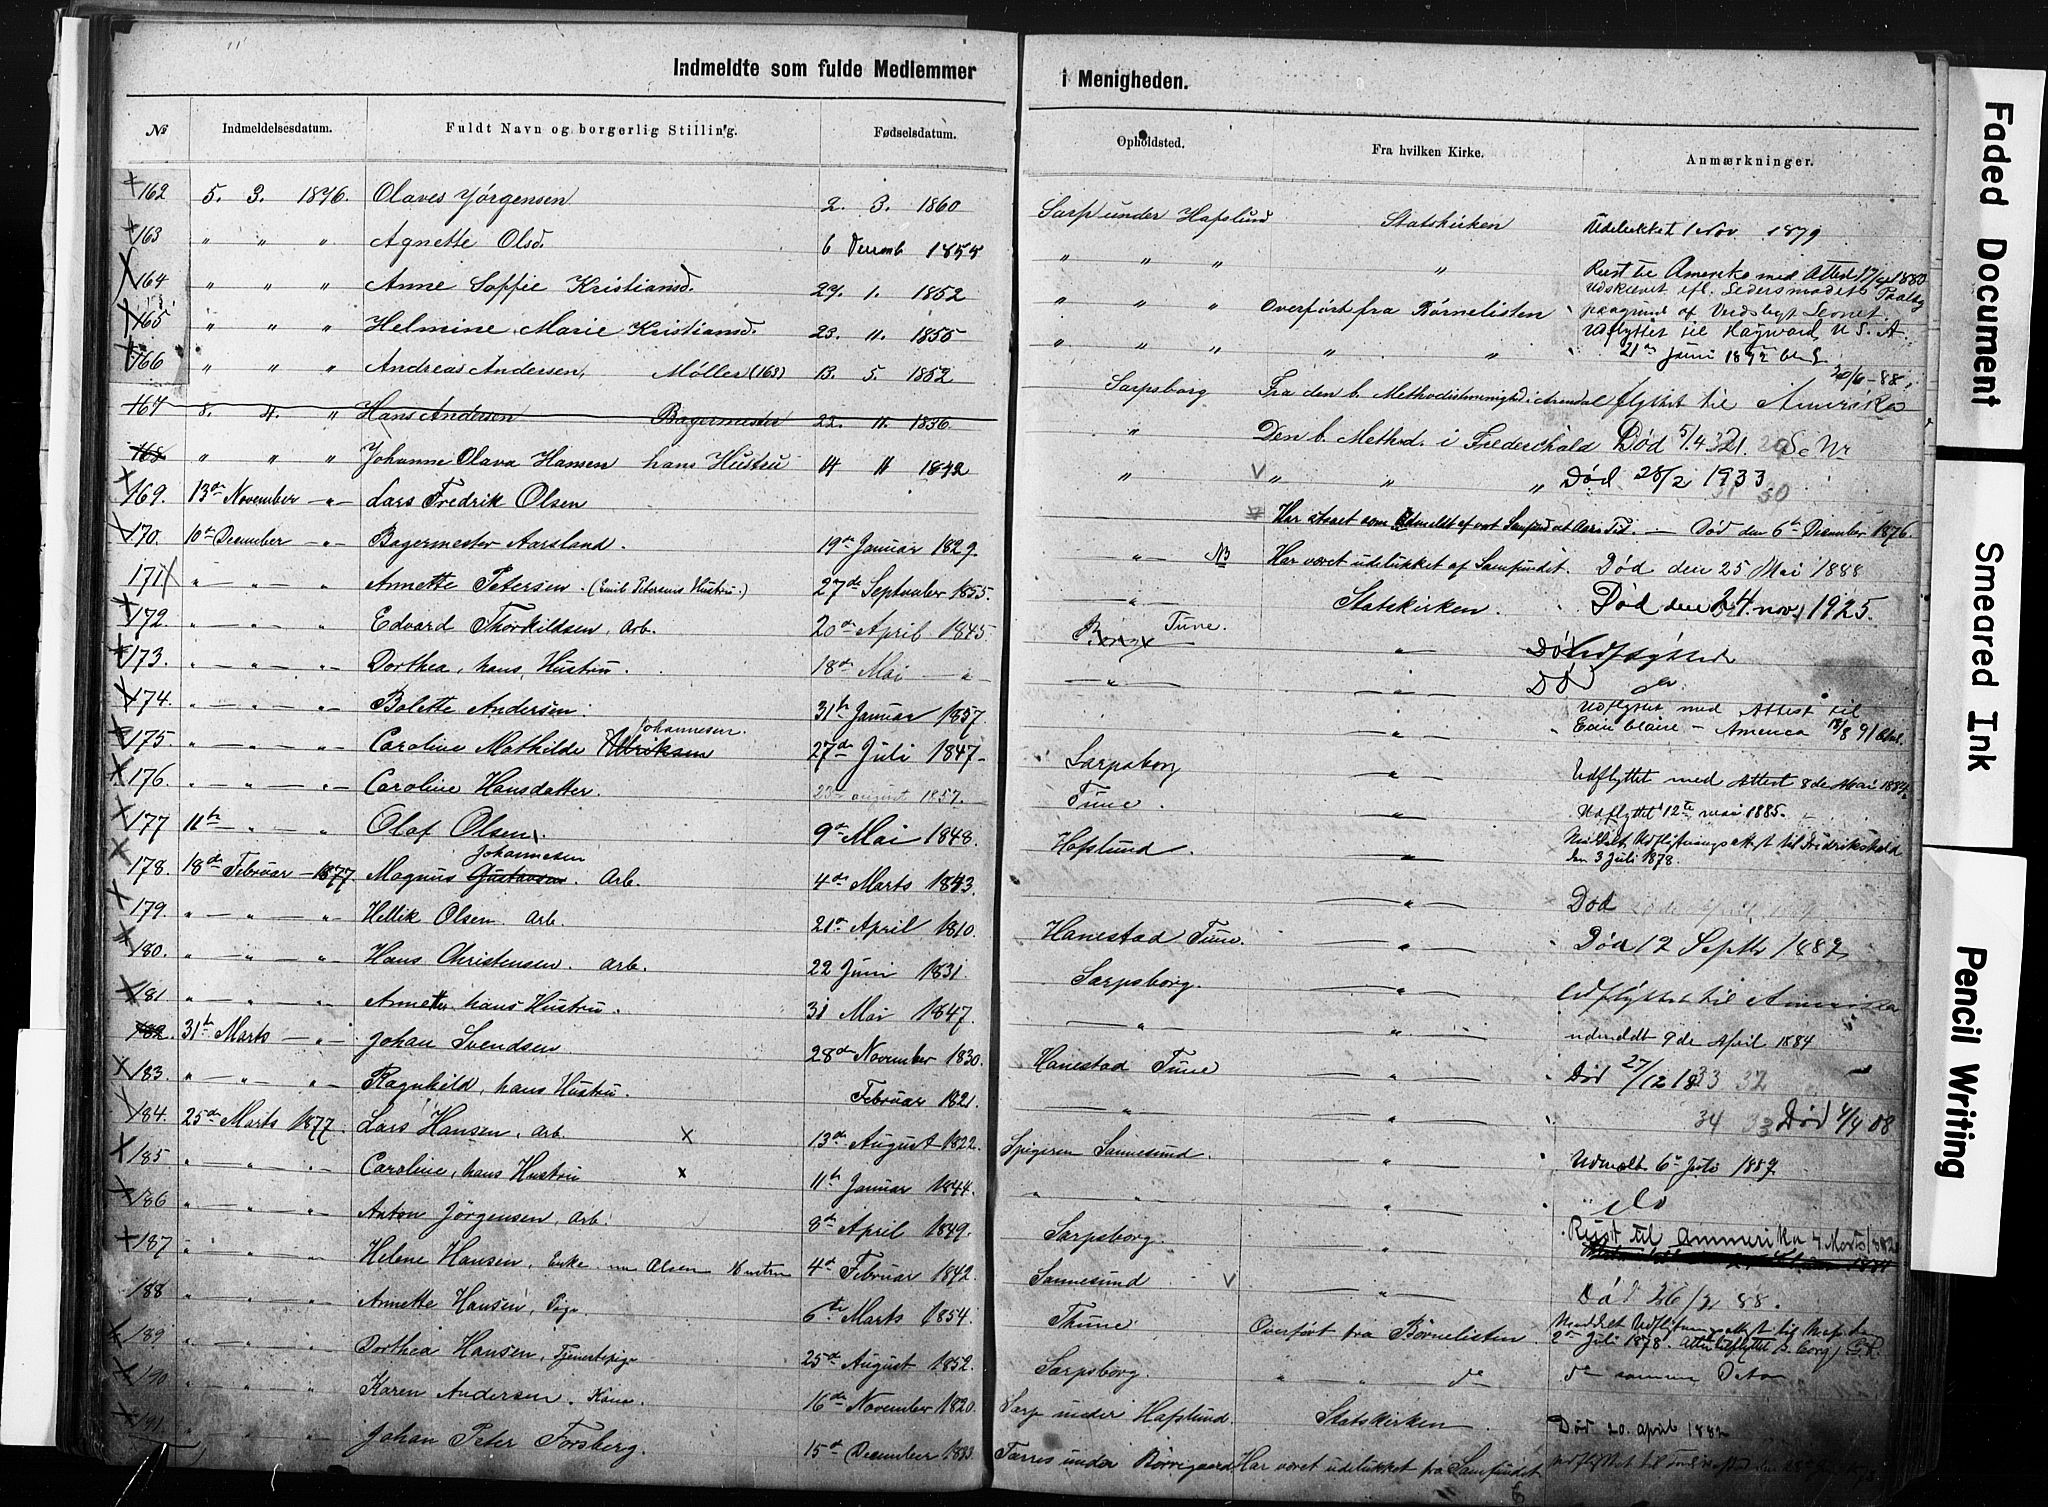 Indmeldte som fulde Medlemmer i Menigheden.
№ Indmeldelsesdatum. Fuldt Navn og borgerlig Stilling. Fødselsdatum. Opholdsted. Fra hvilken Kirke. Anmærkninger.
162 5. 3. 1876. Olaves Jørgensen 2. 3. 1860 Sarp under Hafslund Statskirken Udelukket 1 Nov 1879
163 " " " Agnette Olsd. 6 Decemb 1855 " " " " Reist til Amerika med Attest 17/4 1880
164 " " " Anne Soffie Kristiansd. 29. 1. 1852 " " " Overført fra Børnelisten
165 " " " Helmine Marie Kristiansd. 23. 11. 1855 " " " " " Udflyttet til Hayward U. S. A. 21de Juni 1892
166 " " " Andreas Andersen, Møller (163) 13. 5. 1852 Sarpsborg Fra den b. Methodistmenighed i Arendal flyttet til Amerika 20/6-88
167 8. 4. " Hans Andersen Bagermester 22. 11. 1836 " Den b. Method. i Frederikhald Død 5/4 21.
168 " " " Johanne Olava Hansen hans Hustru 14 11 1842 " V " " " Død 28/2 1933
169. 13de November - " - Lars Fredrik Olsen Død den 6te December 1876.
170. 10de December - " - Bagermester Aarsland. 19de Januar 1829. - " - NB Har været udelukket af Samfundet. Død den 25 Mai 1888
171 " " " Annette Petersen. (Emil Petersens Hustru.) 27de September 1855. - " - Statskirken. Død den 24. nov. 1925.
172 " " " Edvard Thorkildsen, Arb. 20de April 1845 Tune. " Udflyttede
173. " " " Dorthea, hans Hustru. 18de Mai - " - - " - " Død do
174. " " " Bolette Andersen. 31te Januar 1857. " Udflyttet med Attest til Eau Claire - America 18/8 91
175. " " " Caroline Mathilde Johannesen 27de Juli 1847 Sarpsborg " Udflyttet med Attest 8de Mai
176. " " " Caroline Hansdatter. august 1857. Tune. Udflyttet 12te mai 1885.
177 11te " " Olaf Olsen. 9de Mai 1848. Hafslund. " Meddelt Udflytningsattest til Fridrikshald den 3 Juli 1878
178. 18de Februar - 1877. Magnus Johannesen Arb. 4de Marts 1843. " Død
179. " " " Hellik Olsen. Arb. 21de April 1810. Hanestad Tune. " Død 12 Septb 1882
180. " " " Hans Christensen. Arb. 22 Juni 1831. Sarpsborg. " Udflyttet til Amerika
181 " " " Annette, hans Hustru. 31 Mai 1847. - " - " 9de April 1884
182. 31te Marts - " - Johan Svendsen. 28de November 1830. Hanestad Tune " Død 27/12
183. " " " Ragnhild, hans Hustru. Februar 1821. " " 34 33 Død 4/4 08
184. 25de Marts 1877. Lars Hansen, Arb. x 13de August 1822. Spigeren Sannesund. " Udmeldt 6te Juli 1882
185 " " " Caroline, hans Hustru x 11te Januar 1844. " " " do
186 " " " Anton Jørgensen, Arb. 8de April 1849. Sarpsborg. " Reist til Ammerika 4 Marts 1882
187 " " " Helene Hansen, Enke. nu Olsen Hustru 4de Februar 1842. Sannesund V " Død 26/2 88.
188 " " " Annette Hansen, Pige 6te Marts 1854. Thune Overført fra Børnelisten. Meddelt Udflytningsattest 2den Juli 1878.
189. " " " Dorthea Hansen, Tjenestepige 25de August 1852. Sarpsborg. " " do
190 " " " Karen Andersen, Kone. 16de November 1820. Sarp under Hafslund. Statskirken. Død 20. april 1882
191 " " " Johan Peter Forsberg. 15de December Torres under Borregaard Har været udelukket fra Samfundet
Faded Document
Smeared Ink
Pencil Writing